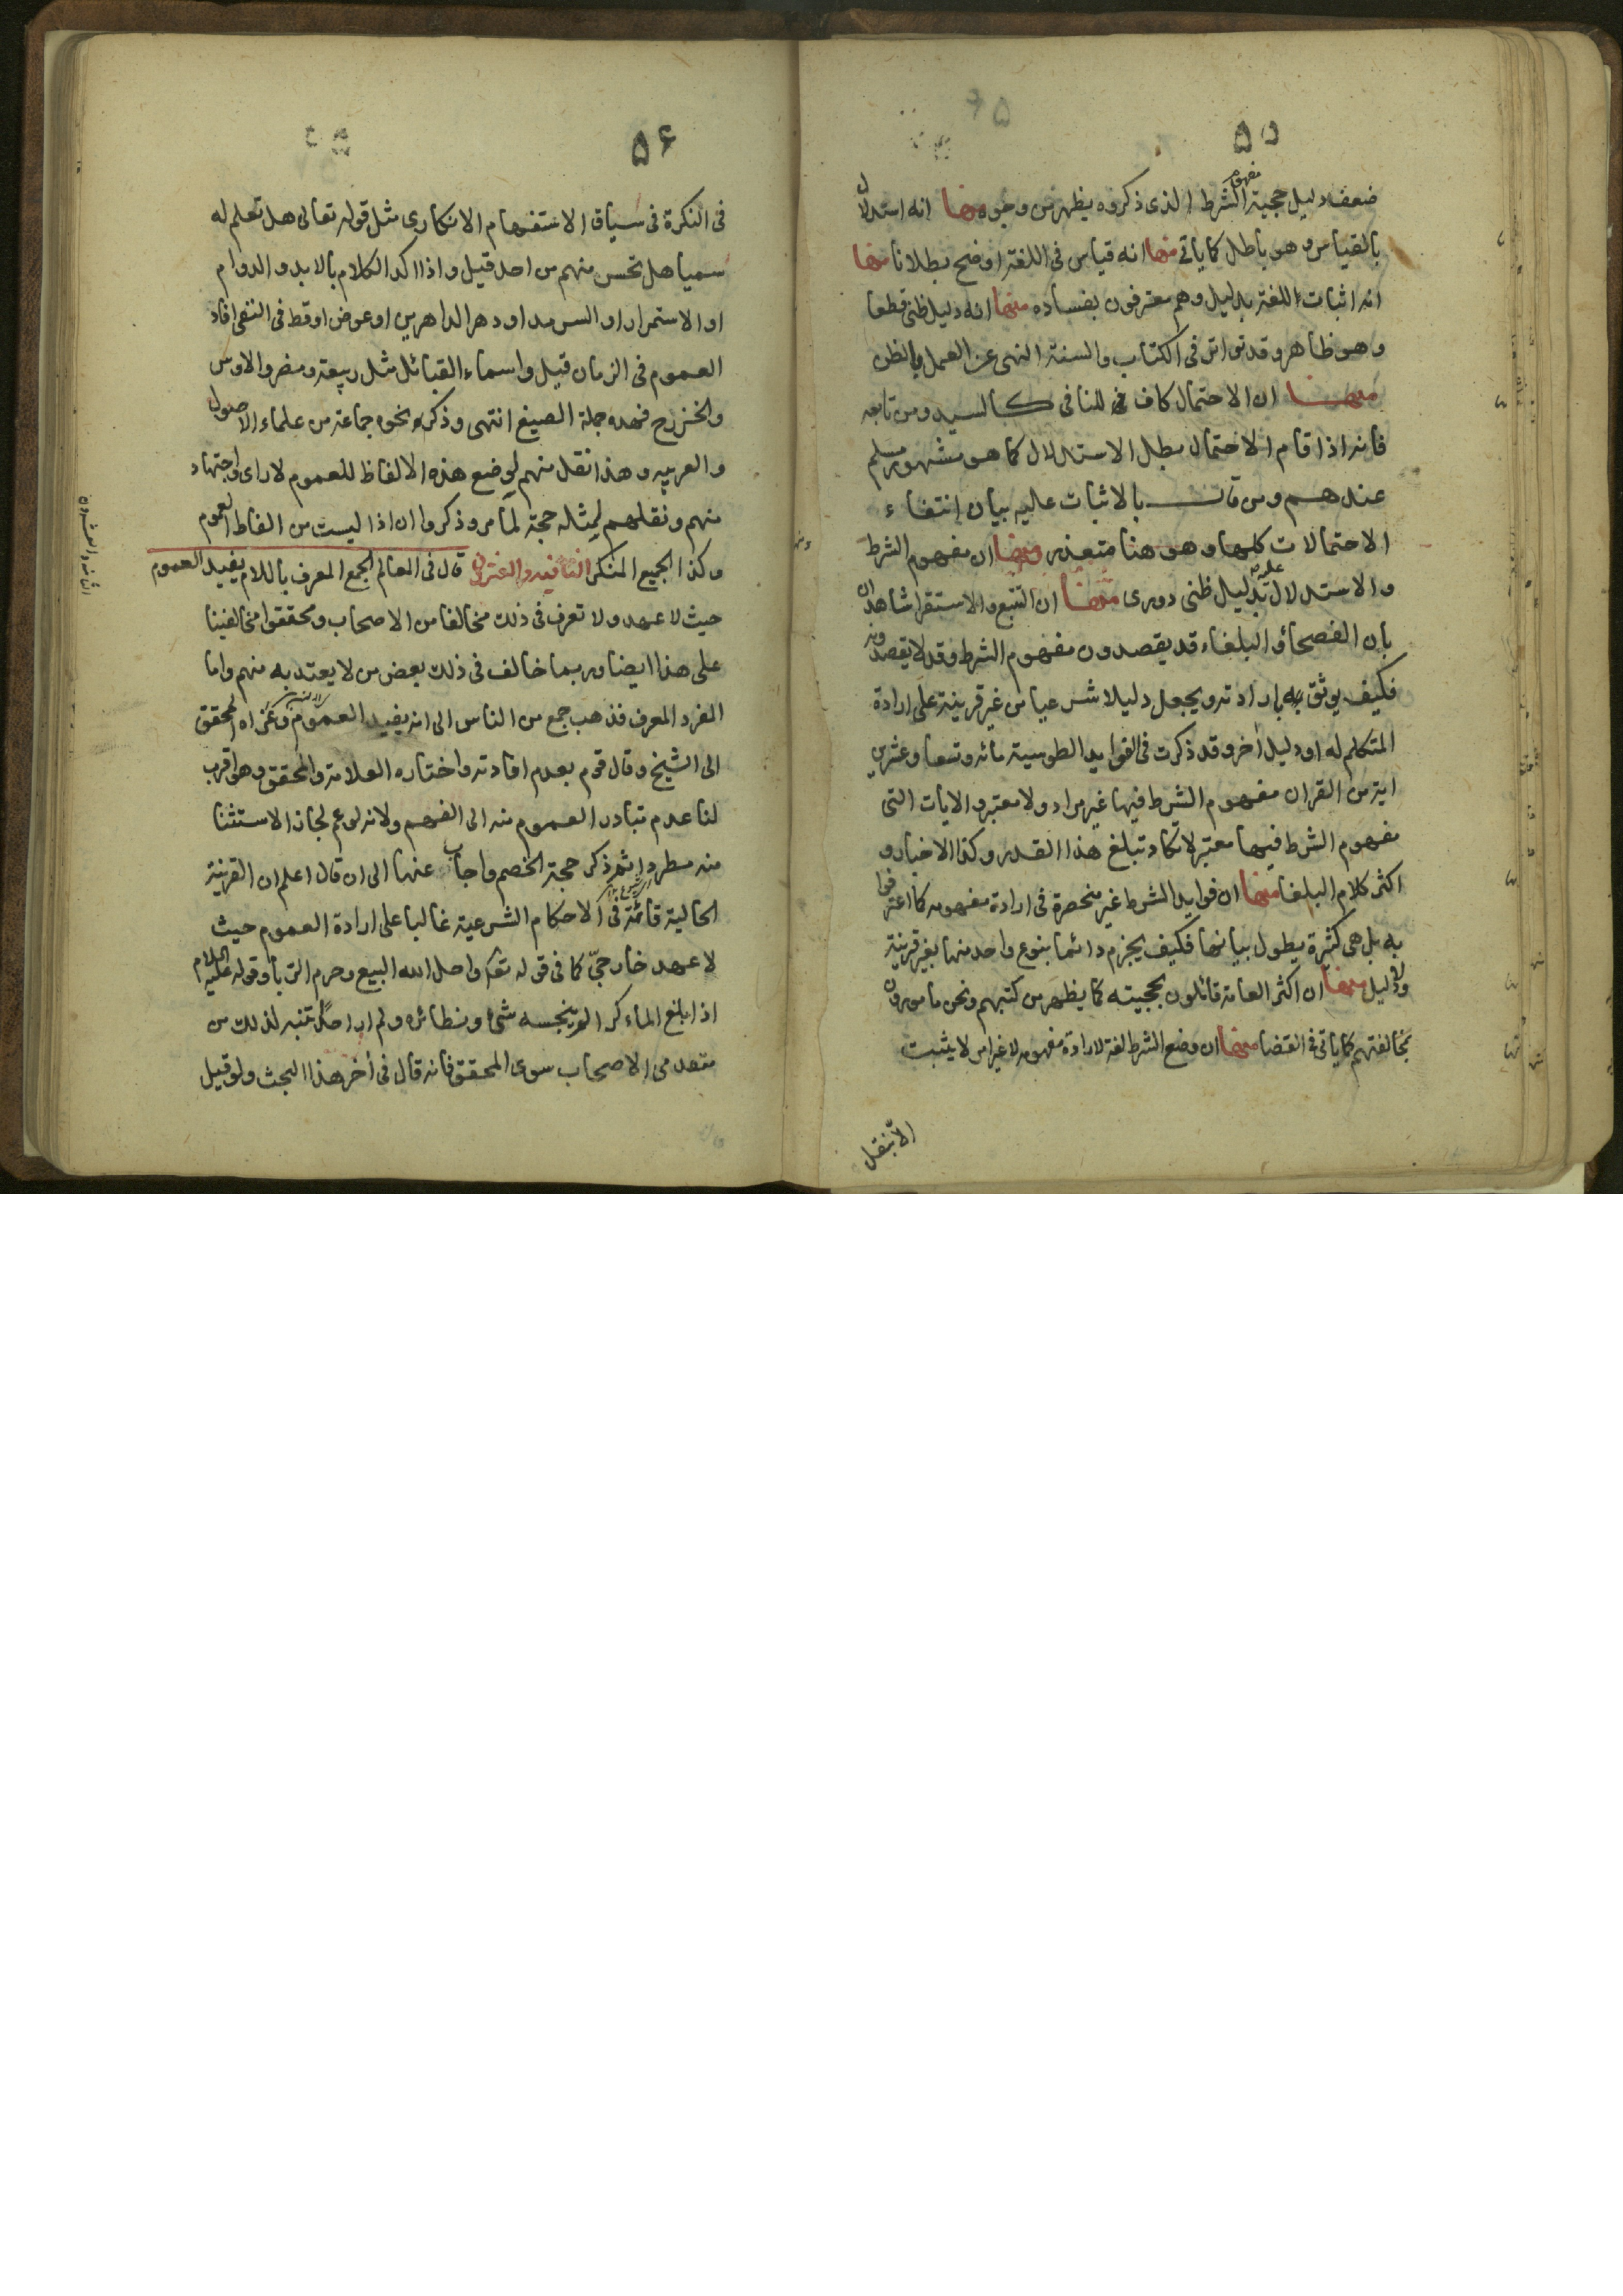 ۵۵
ضعف دليل حجية مفهوم الشرط الذى ذكروه يظهر من وجوه منها انه استدلال
بالقياس وهو باطل كما ياتى منها انه قياس فى اللغة اوضح بطلانا منها
انه اثبات اللغة بدليل وهم معترفون بفساده منها انه دليل ظنى قطعا
وهو ظاهر وقد تواتر فى الكتاب والسنة النهى عن العمل بالظن
منها ان الاحتمال كاف للنافى كالسيد ومن تابعه
فانه اذا قام الاحتمال بطل الاستدلال كما هو مشهور مسلم
عندهم ومن قال بالاثبات عليه بيان إنتفاء
الاحتمالات كلها وهو هنا متعذر ومنها ان مفهوم الشرط
والاستدلال عليه بدليل ظنى دورى منها ان التتبع والاستقرا شاهدان
بان الفصحا والبلغاء قد يقصدون مفهوم الشرط وقد لا يقصدونه
فكيف يوثق بارادته ويجعل دليلا شرعيا من غير قرينة على ارادة
المتكلم له او دليل أخر وقد ذكرت فى الفوايد الطوسية مائه وتسعا وعشرين
اية من القران مفهوم الشرط فيها غير مراد ولا معتبر والايات التى
مفهوم الشرط فيها معتبر لا تكاد تبلغ هذا القدر وكذا الاخبار و
اكثر كلام البلغا منها ان فوايد الشرط غير منحصرة فى ارادة مفهومه كما اعترفوا
به بل هى كثيرة يطول بيانها فكيف يجزم دائما بنوع واحد منها بغير قرينة
ولا دليل منها ان اكثر العامة قائلون بحجيته كما يظهر من كتبهم ونحن مامورون
بمخالفتهم كما ياتى فى القضا منها ان وضع الشرط لغة لارادة مفهومه لا غير امر لا يثبت
الا بنقل
۵۶
فى النكرة فى سياق الاستفهام الانكارى مثل قوله تعالى هل تعلم له
سميا هل تحس منهم من احد قيل واذا اكد الكلام بالابد والدوام
او الاستمرار او السرمد او دهر الداهرين او عوض او قط فى النفى افاد
العموم فى الزمان قيل واسماء القبائل مثل ربيعة ومضر والاوس
والخزرج فهذه جملة الصيغ انتهى وذكر نحوه جماعة من علماء الاصول
والعربيه وهذا نقل منهم لوضع هذه الالفاظ للعموم لا راى واجتهاد
منهم ونقلهم لمثله حجة لما مر وذكروا ان اذا ليست من الفاظ العموم
وكذا الجمع المنكر الثانيه والعشرون قال فى المعالم الجمع المعرف باللام يفيد العموم
حيث لا عهد ولا تعرف فى ذلك مخالفا من الاصحاب ومحققوا مخالفينا
على هذا ايضا وربما خالف فى ذلك بعض من لا يعتد به منهم واما
المفرد المعرف فذهب جمع من الناس الى انه يفيد العموم وعزاه المحقق
الى الشيخ وقال قوم بعدم افادته واختاره العلامة والمحقق وهو اقرب
لنا عدم تبادر العموم منه الى الفهم ولانه لو عم لجاز الاستثنا
منه مطردا ثم ذكر حجة الخصم واجاب عنها الى ان قال اعلم ان القرينة
الحالية قائمة فى الاحكام الشرعية غالبا على ارادة العموم حيث
لا عهد خارجىّ كما فى قوله تعالى واحل الله البيع وحرم الربا وقوله عليه السلام
اذا بلغ الماء كرا لم ينجسه شئ ونظائره ولم ار احدا تنبه لذلك من
متقدمى الاصحاب سوى المحقق فانه قال فى أخر هذا البحث ولو قيل
الثانيه والعشرون